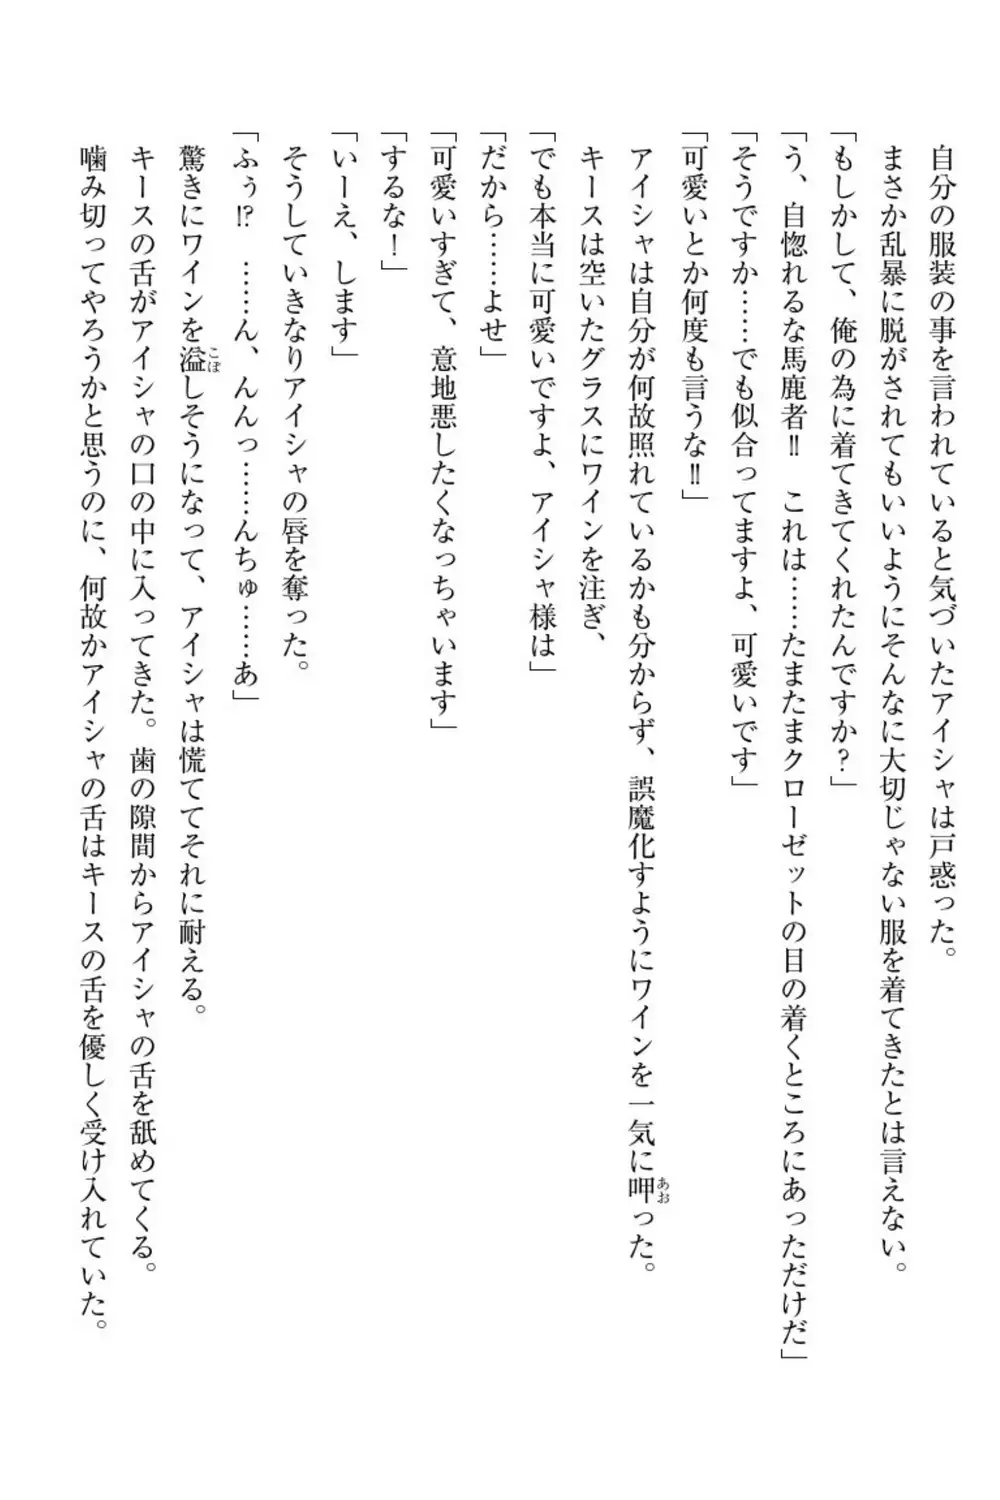 自分の服装の事を言われていると気づいたアイシャは戸惑った。
まさか乱暴に脱がされてもいいようにそんなに大切じゃない服を着てきたとは言えない。
「もしかして、俺の為に着てきてくれたんですか？」
「う、自惚れるな馬鹿者‼　これは……たまたまクローゼットの目の着くところにあっただけだ」
「そうですか……でも似合ってますよ、可愛いです」
「可愛いとか何度も言うな‼」
アイシャは自分が何故照れているかも分からず、誤魔化すようにワインを一気に呷った。
あお
キースは空いたグラスにワインを注ぎ、
「でも本当に可愛いですよ、アイシャ様は」
「だから……よせ」
「可愛いすぎて、意地悪したくなっちゃいます」
「するな！」
「いーえ、します」
そうしていきなりアイシャの唇を奪った。
「ふぅ⁉　……ん、んんっ……んちゅ……あ」
驚きにワインを溢しそうになって、アイシャは慌ててそれに耐える。
こぼ
キースの舌がアイシャの口の中に入ってきた。歯の隙間からアイシャの舌を舐めてくる。
噛み切ってやろうかと思うのに、何故かアイシャの舌はキースの舌を優しく受け入れていた。